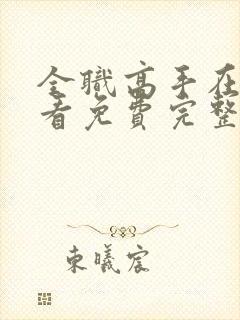 全職高手在
看免費完整
東曦宸